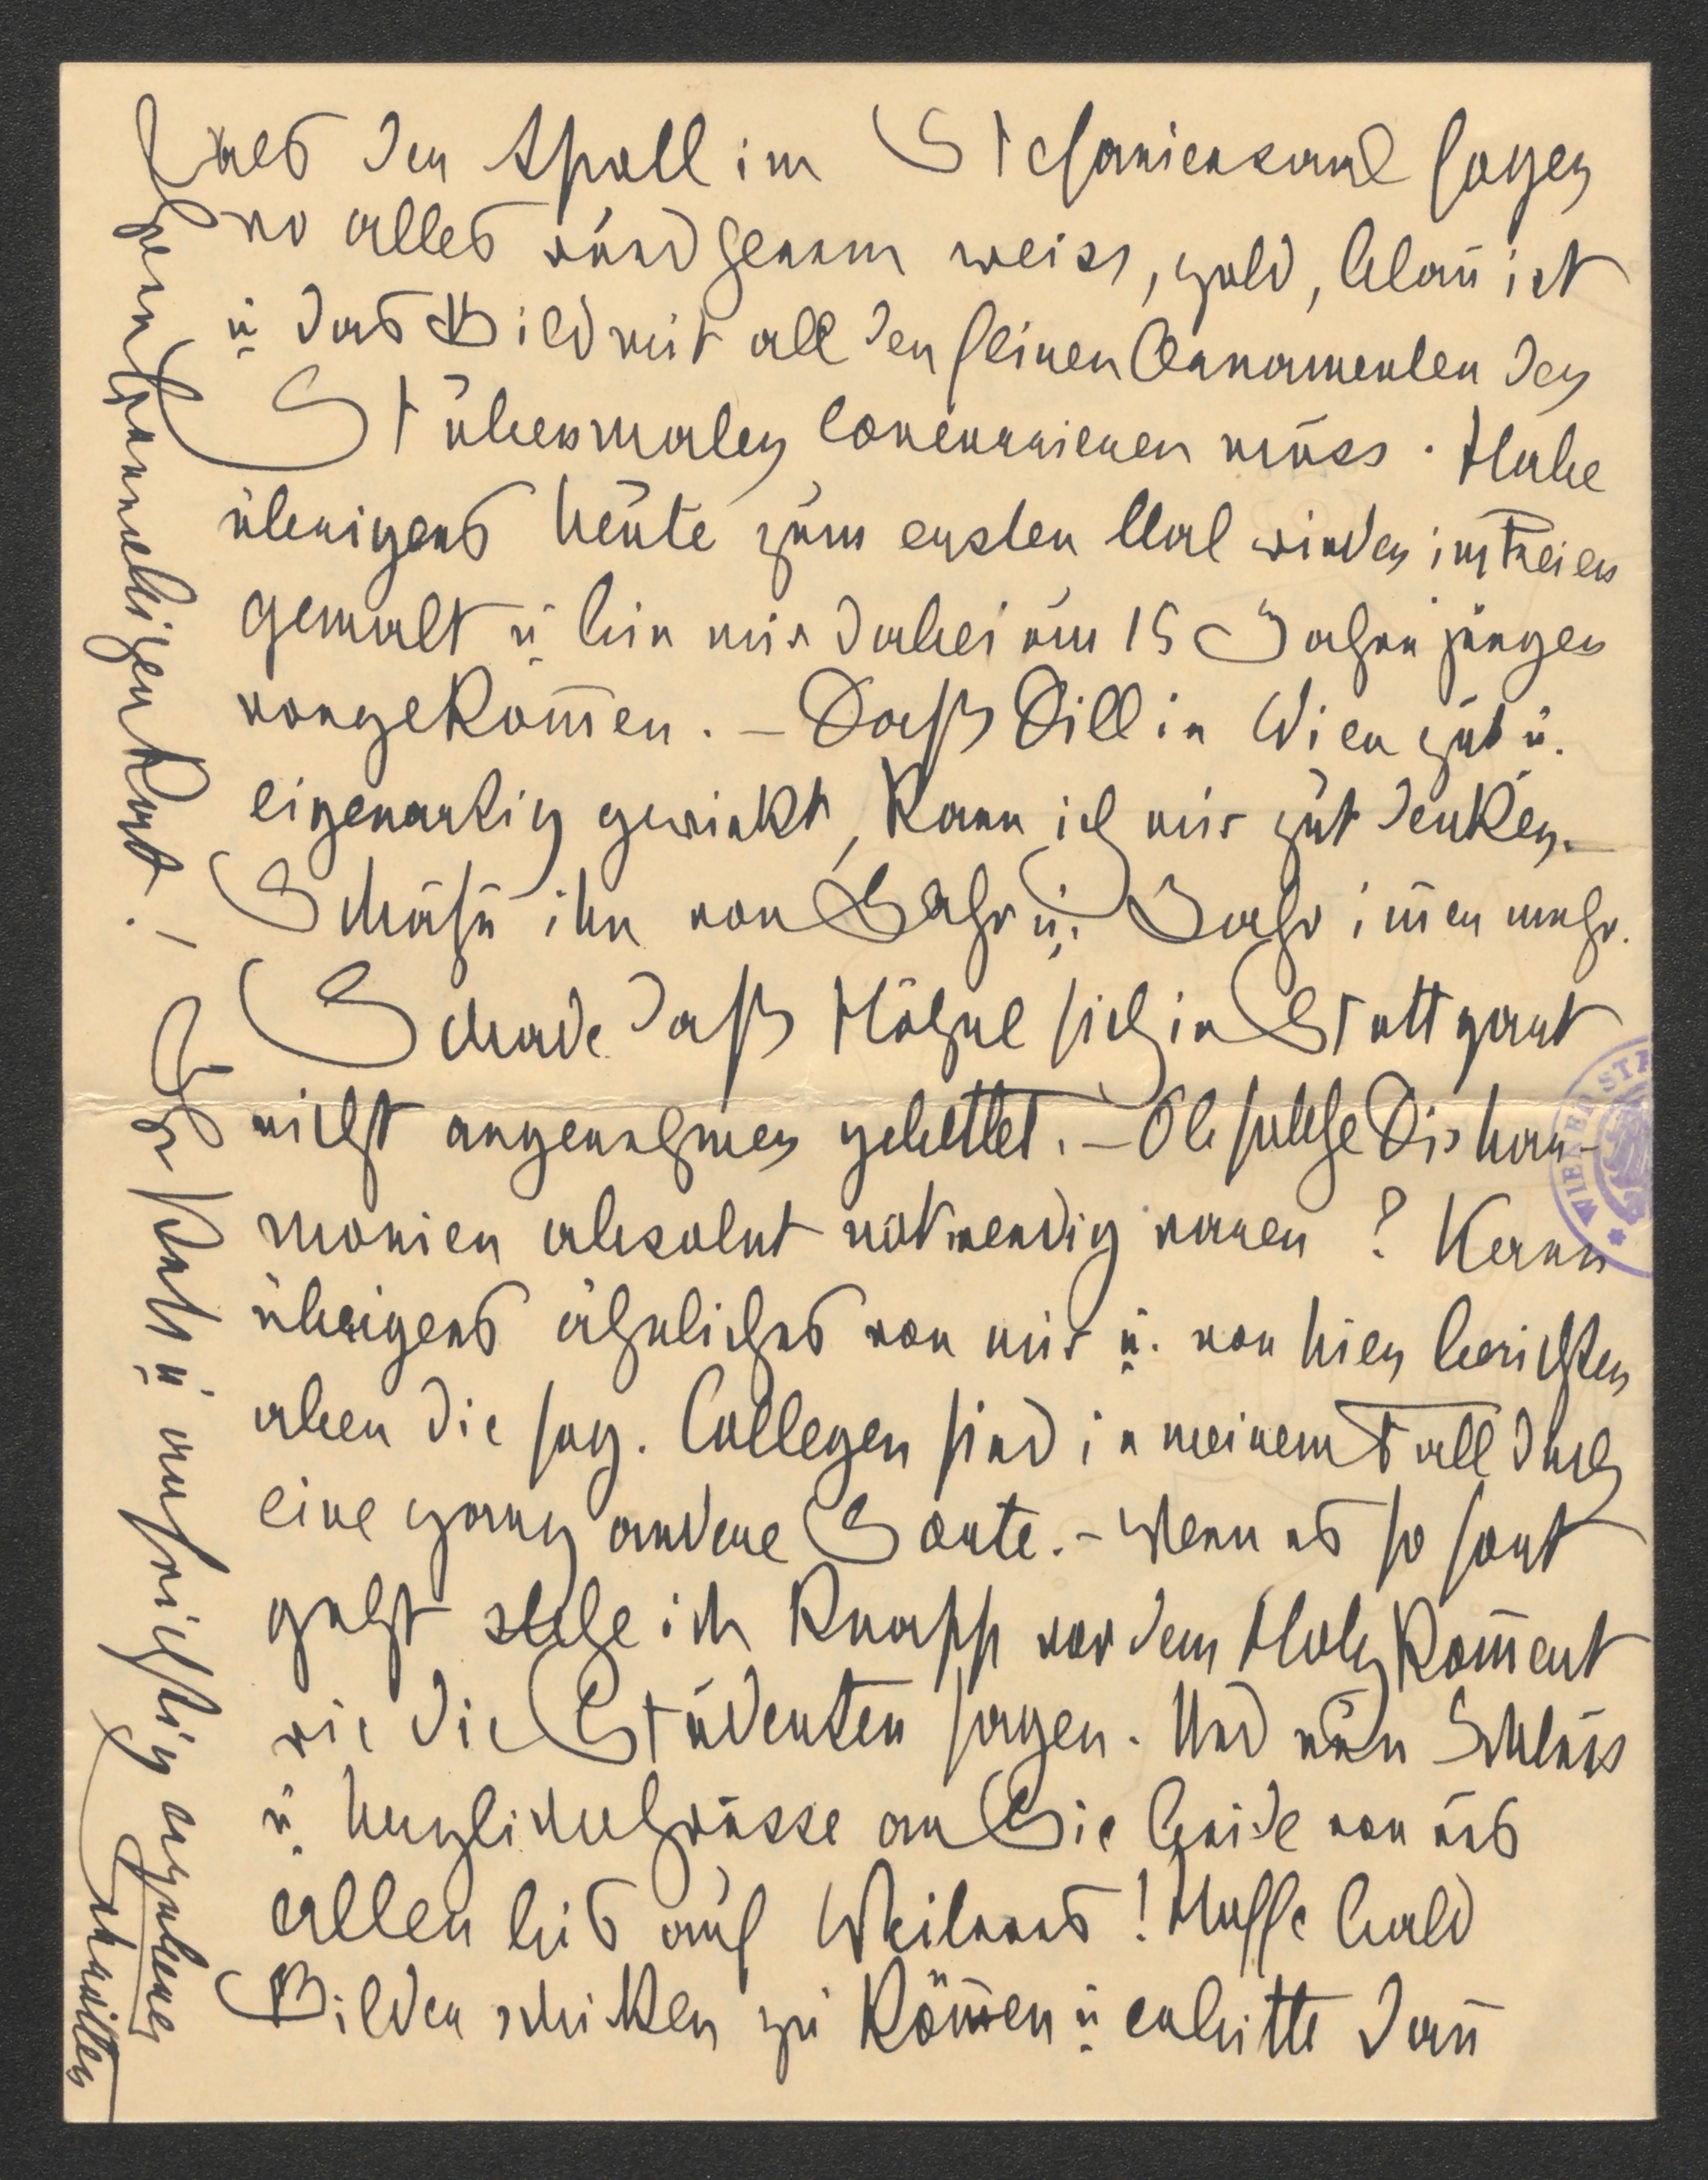 das der Apoll im Stefaniensaal hoger
wo alles rund herum weiss, gold, blau ist
u das Bild mit all den feinen Ornamenten der
Stubenmaler concurrieren muss. Habe
übrigens heute zum ersten Mal wieder im Freien
gemalt u bin mir dabei um 15 Jahre jünger
vorgekommen. – Daß Dill in Wien gut u.
eigenartig gewirkt, kann ich mir gut denken. –
Schätze ihn von Jahr u. Jahr immer mehr.
Schade daß Hölzel sich in Stuttgart
nicht angenehmer gebettet. – Ob solche Dishar-
monien absolut notwendig waren? Kann
übrigens ähnliches von mir u. von hier berichten
aber die sog. Collegen sind in meinem Fall doch
eine ganz andere Sorte. – Wenn es so fort
geht stehe ich knapp vor dem Holzkomment
wie die Studenten sagen. Und nun Schluss
u. herzliche Grüsse an Sie beide von uns
allen bis auf Weiteres! Hoffe bald
Bilder schicken zu können u erbitte dann
Ihren freundlichen Rat. / Ihr stets u aufrichtig ergebener
Schrötter
WIENER STA